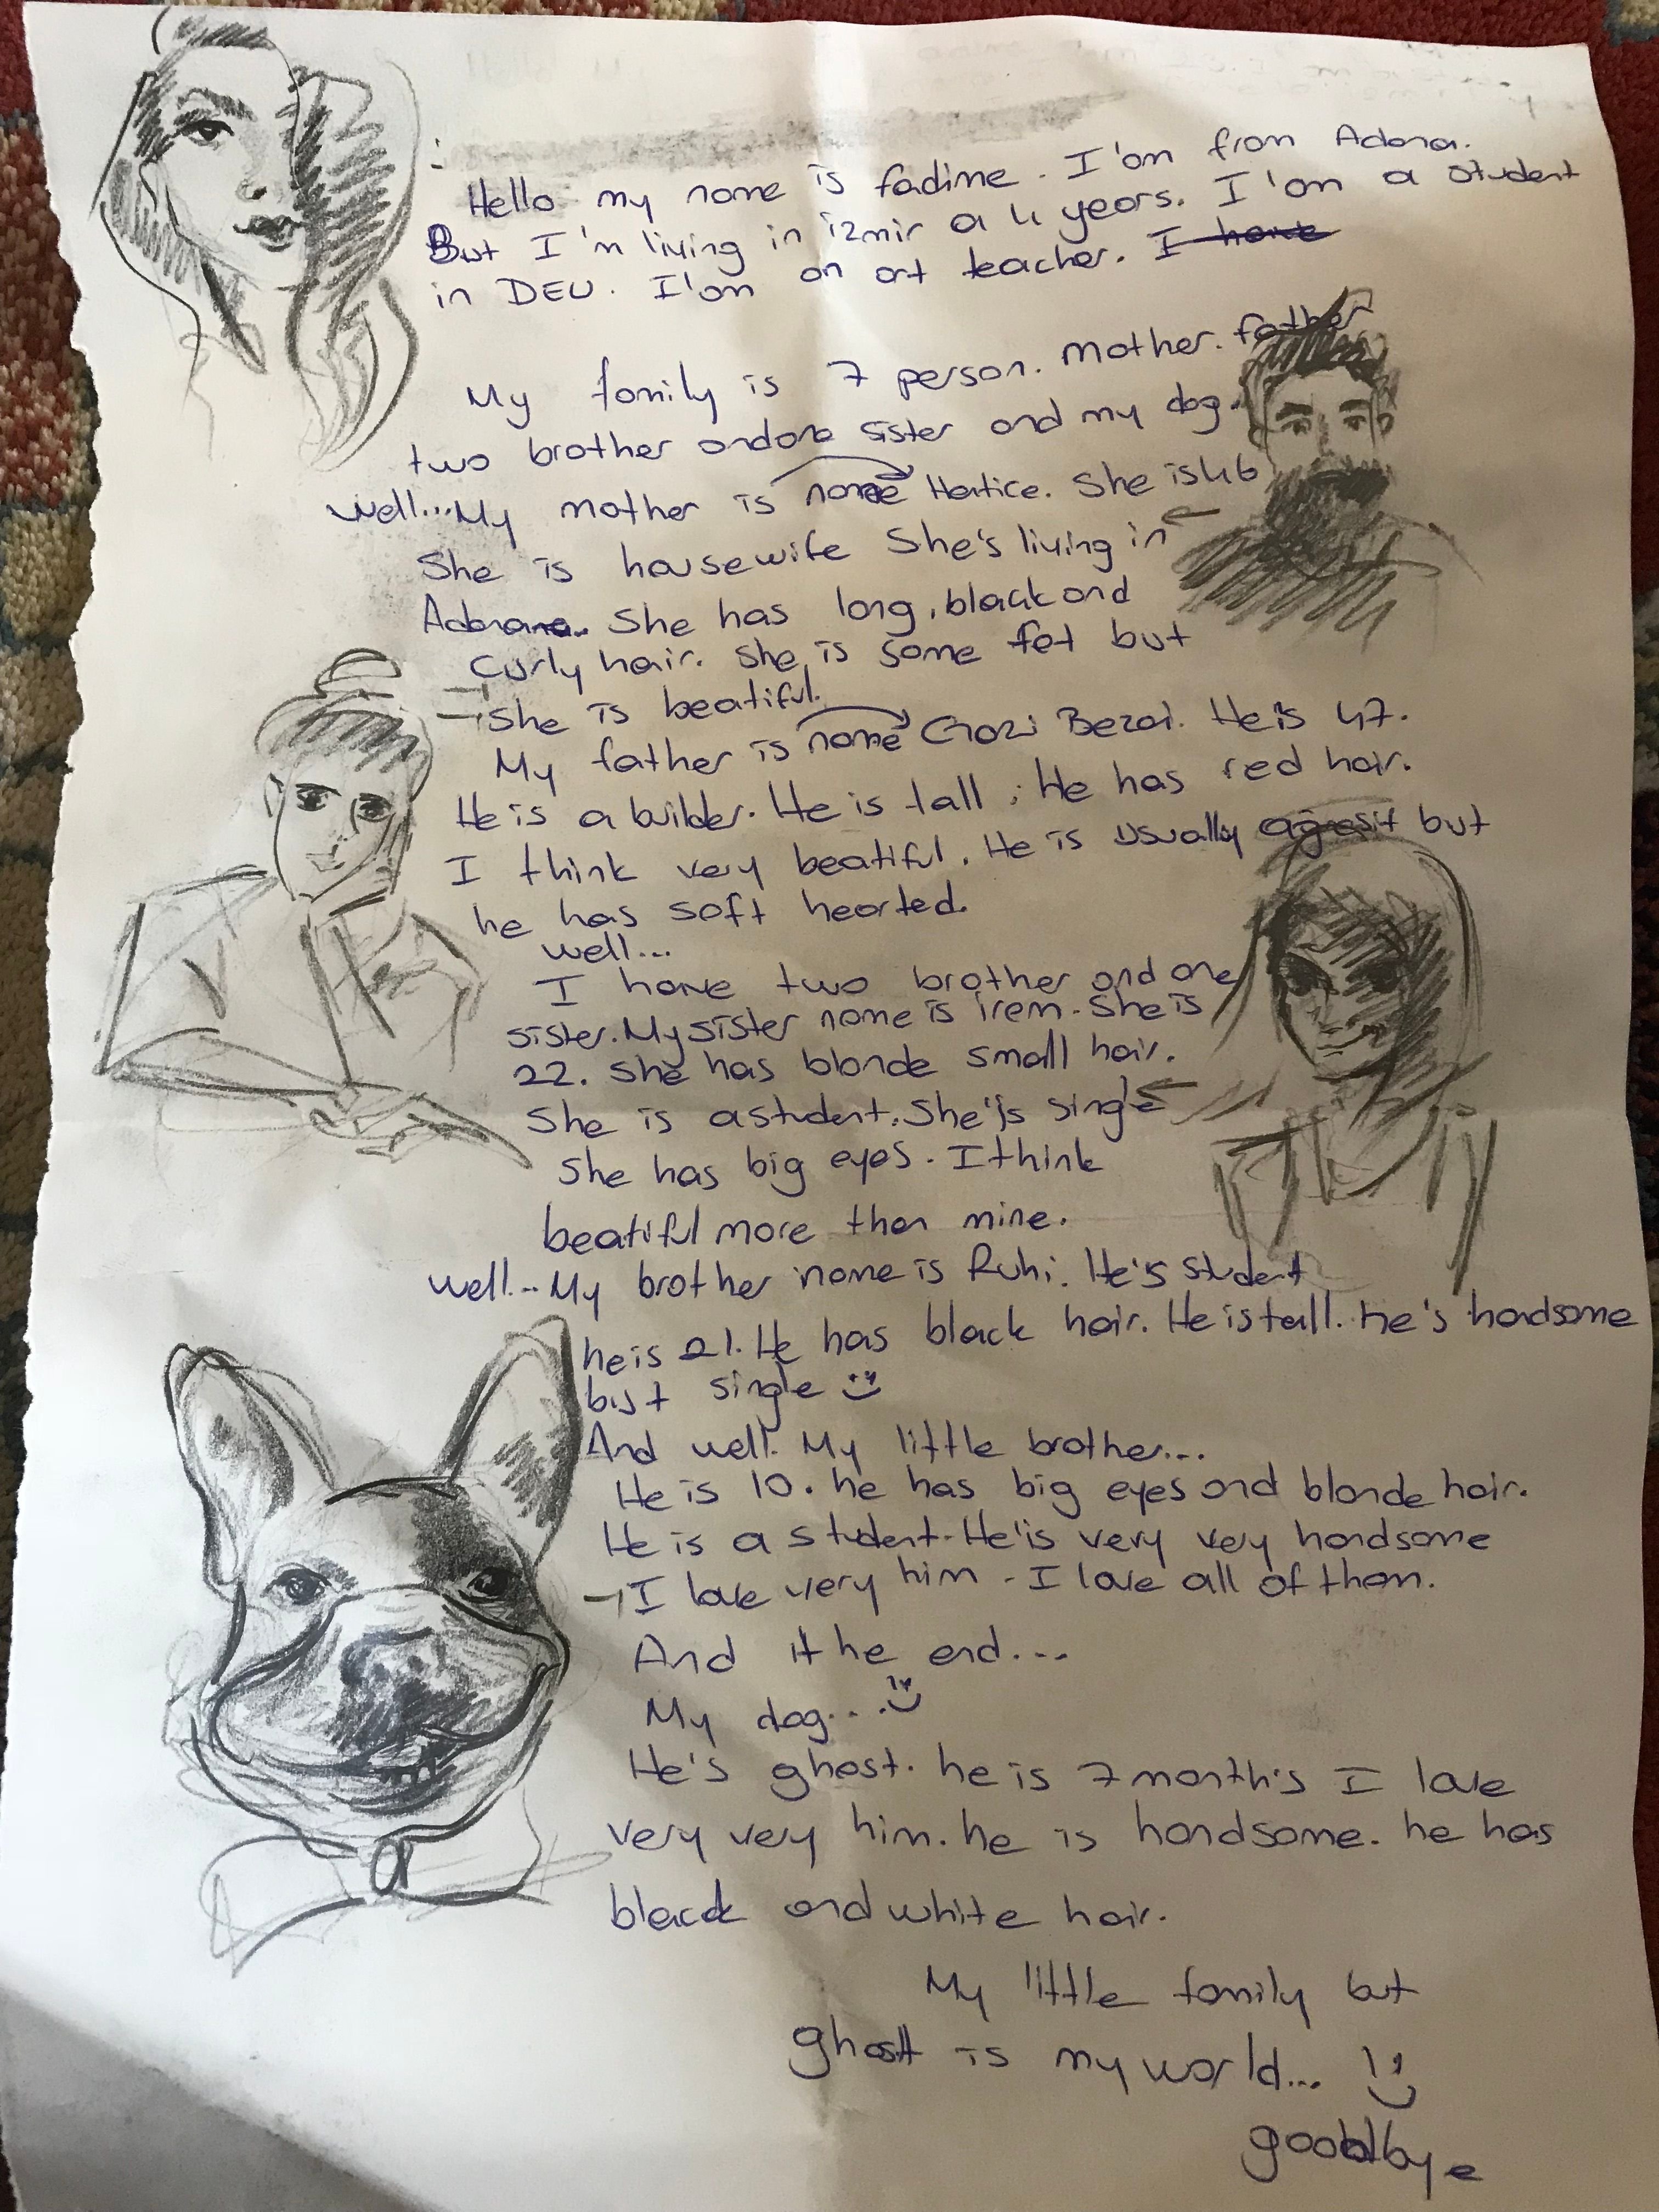 Hello my name is fadime. I'am from Adana.
But I'm living in izmir a 4 years. I'am a student
in DEU. I'am an art teacher. I have
My family is 7 person. mother. father
two brother and one sister and my dog.
well... My mother is name Hatice. She is 46
She is housewife She's living in
Adana. She has long, black and
curly hair. She is some fat but
She is beatiful.
My father is name Gazi Bezai. He is 47.
He is a builder. He is tall. He has red hair.
I think very beatiful. He is usually agresif but
he has soft hearted.
well...
I have two brother and one
sister. My sister name is irem. She is
22. She has blonde small hair.
She is a student. She'is single
She has big eyes. I think
beatiful more than mine.
well... My brother name is Ruhi. He's student
he is 21. He has black hair. He is tall. he's handsome
but single
And well. My little brother...
He is 10. he has big eyes and blonde hair.
He is a student. He'is very very handsome
I love very him - I love all of them.
And the end...
My dog...
He's ghost. he is 7 month's I love
very very him. he is handsome. he has
black and white hair.
My little family but
ghost is my world...
goodbye